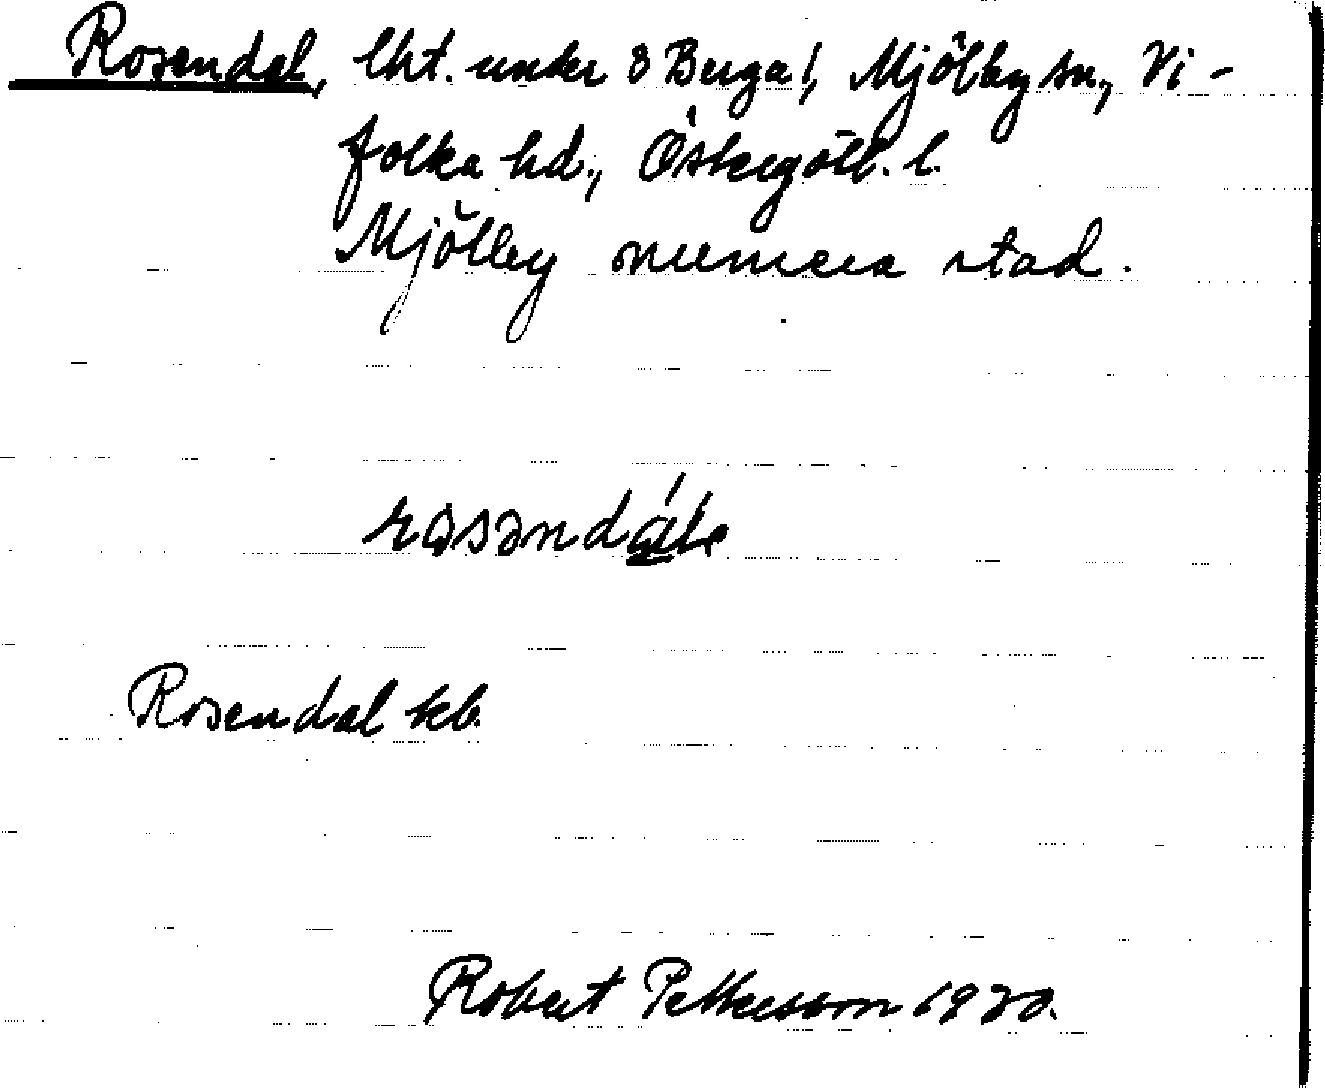 Rosendal, lht. under 3 Berga!, Mjölby sn., Vi-
folka hd., Östergötl. l.
Mjölby numera stad.
Rosendal kb.
Robert Pettersson 1920.